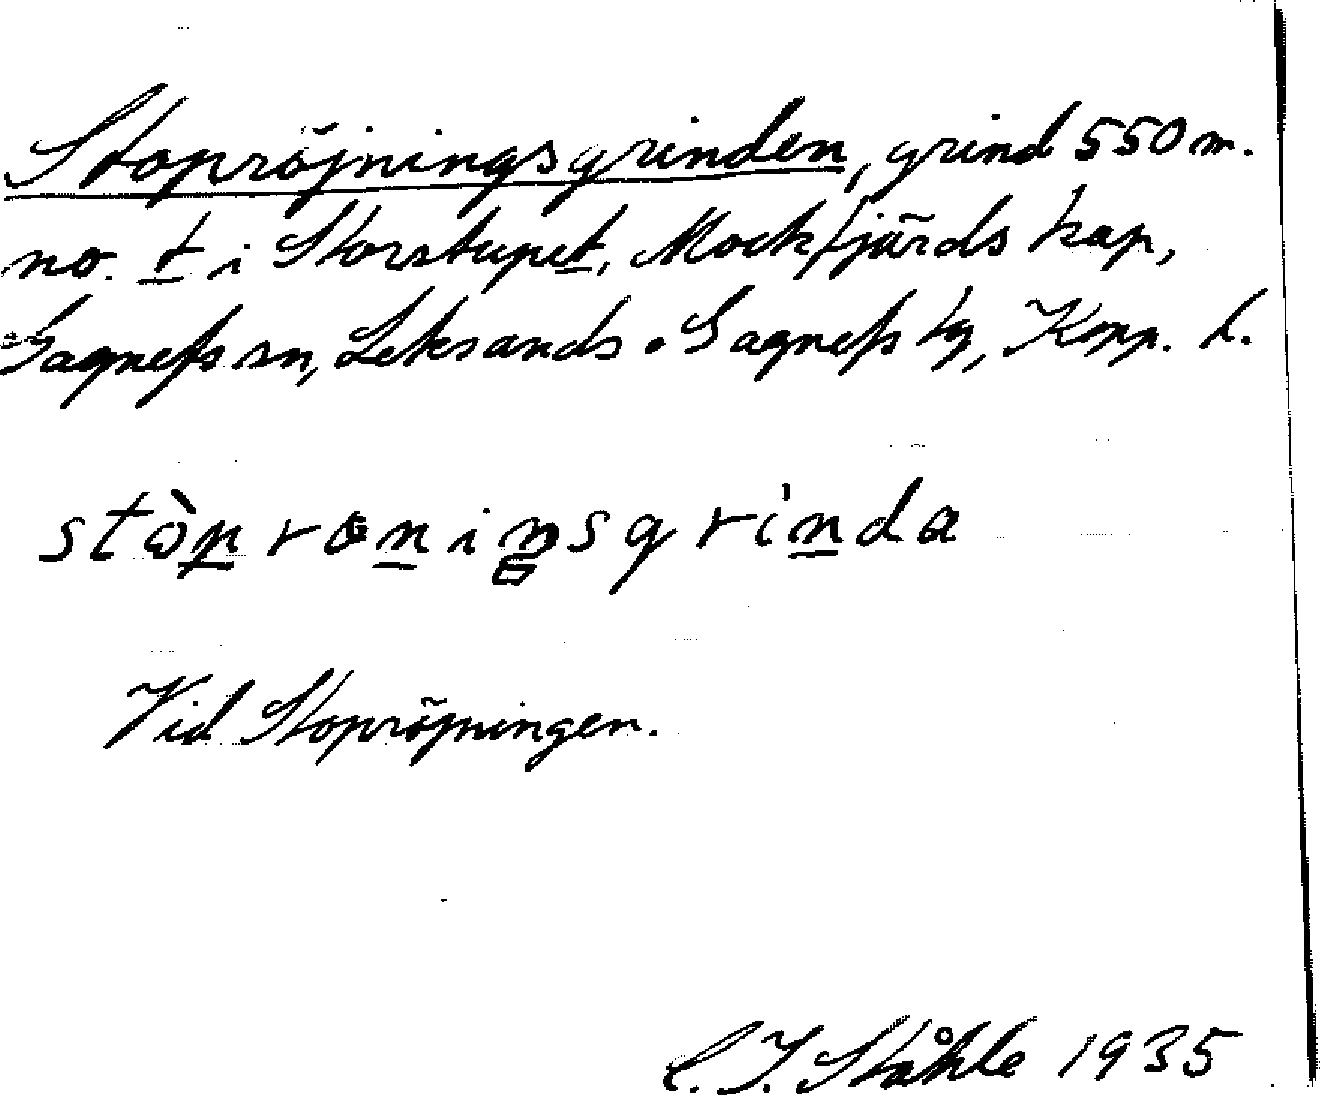 Stopröjningsgrinden, grind 550 m.
no. t i Storstupet, Mockfjärds kap,
Gagnefs sn, Leksands o. Gagnefs tg, Kopp. l.
stòpröningsgrinda
Vid Stopröjningen.
C. I. Ståhle 1935